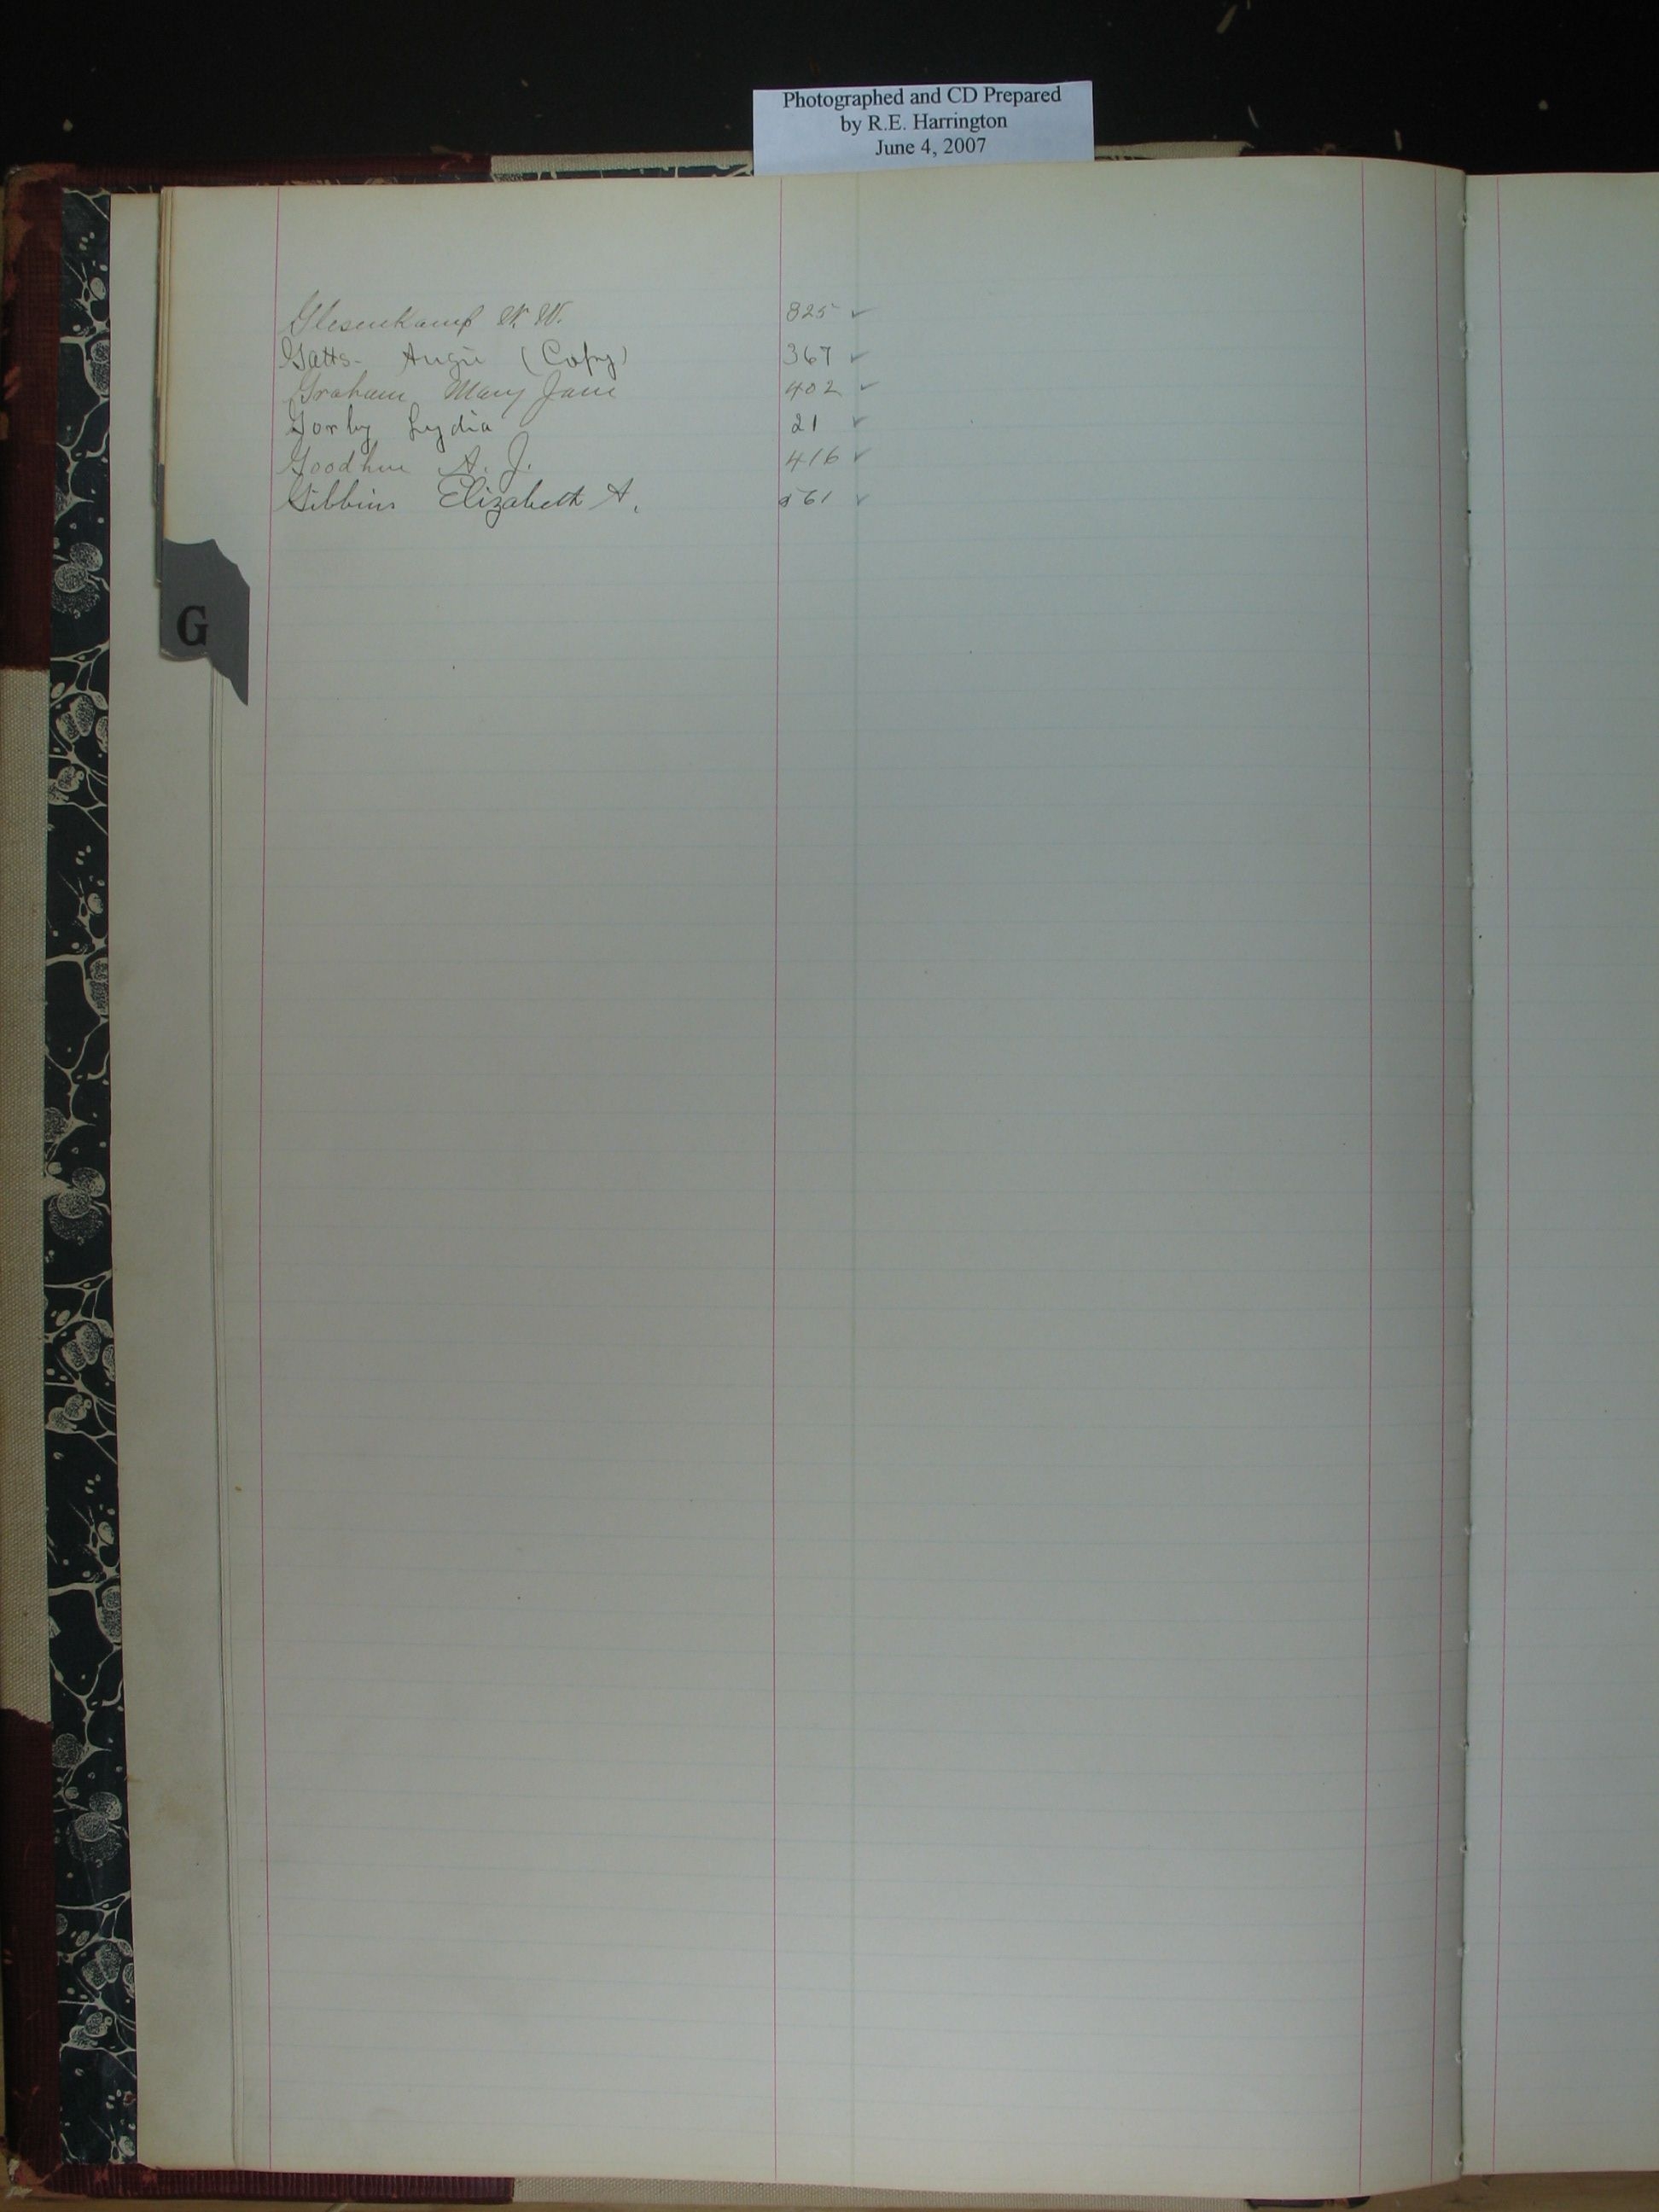 Photographed and CD Prepared
by R.E. Harrington
June 4, 2007
Glesenkamp W. W. 825 ✓
Gatts- Angie (Copy) 367 ✓
Graham Mary Jane 402 ✓
Gorby Lydia 21 ✓
Goodhue A. J. 416 ✓
Gibbins Elizabeth A. 561 ✓
G